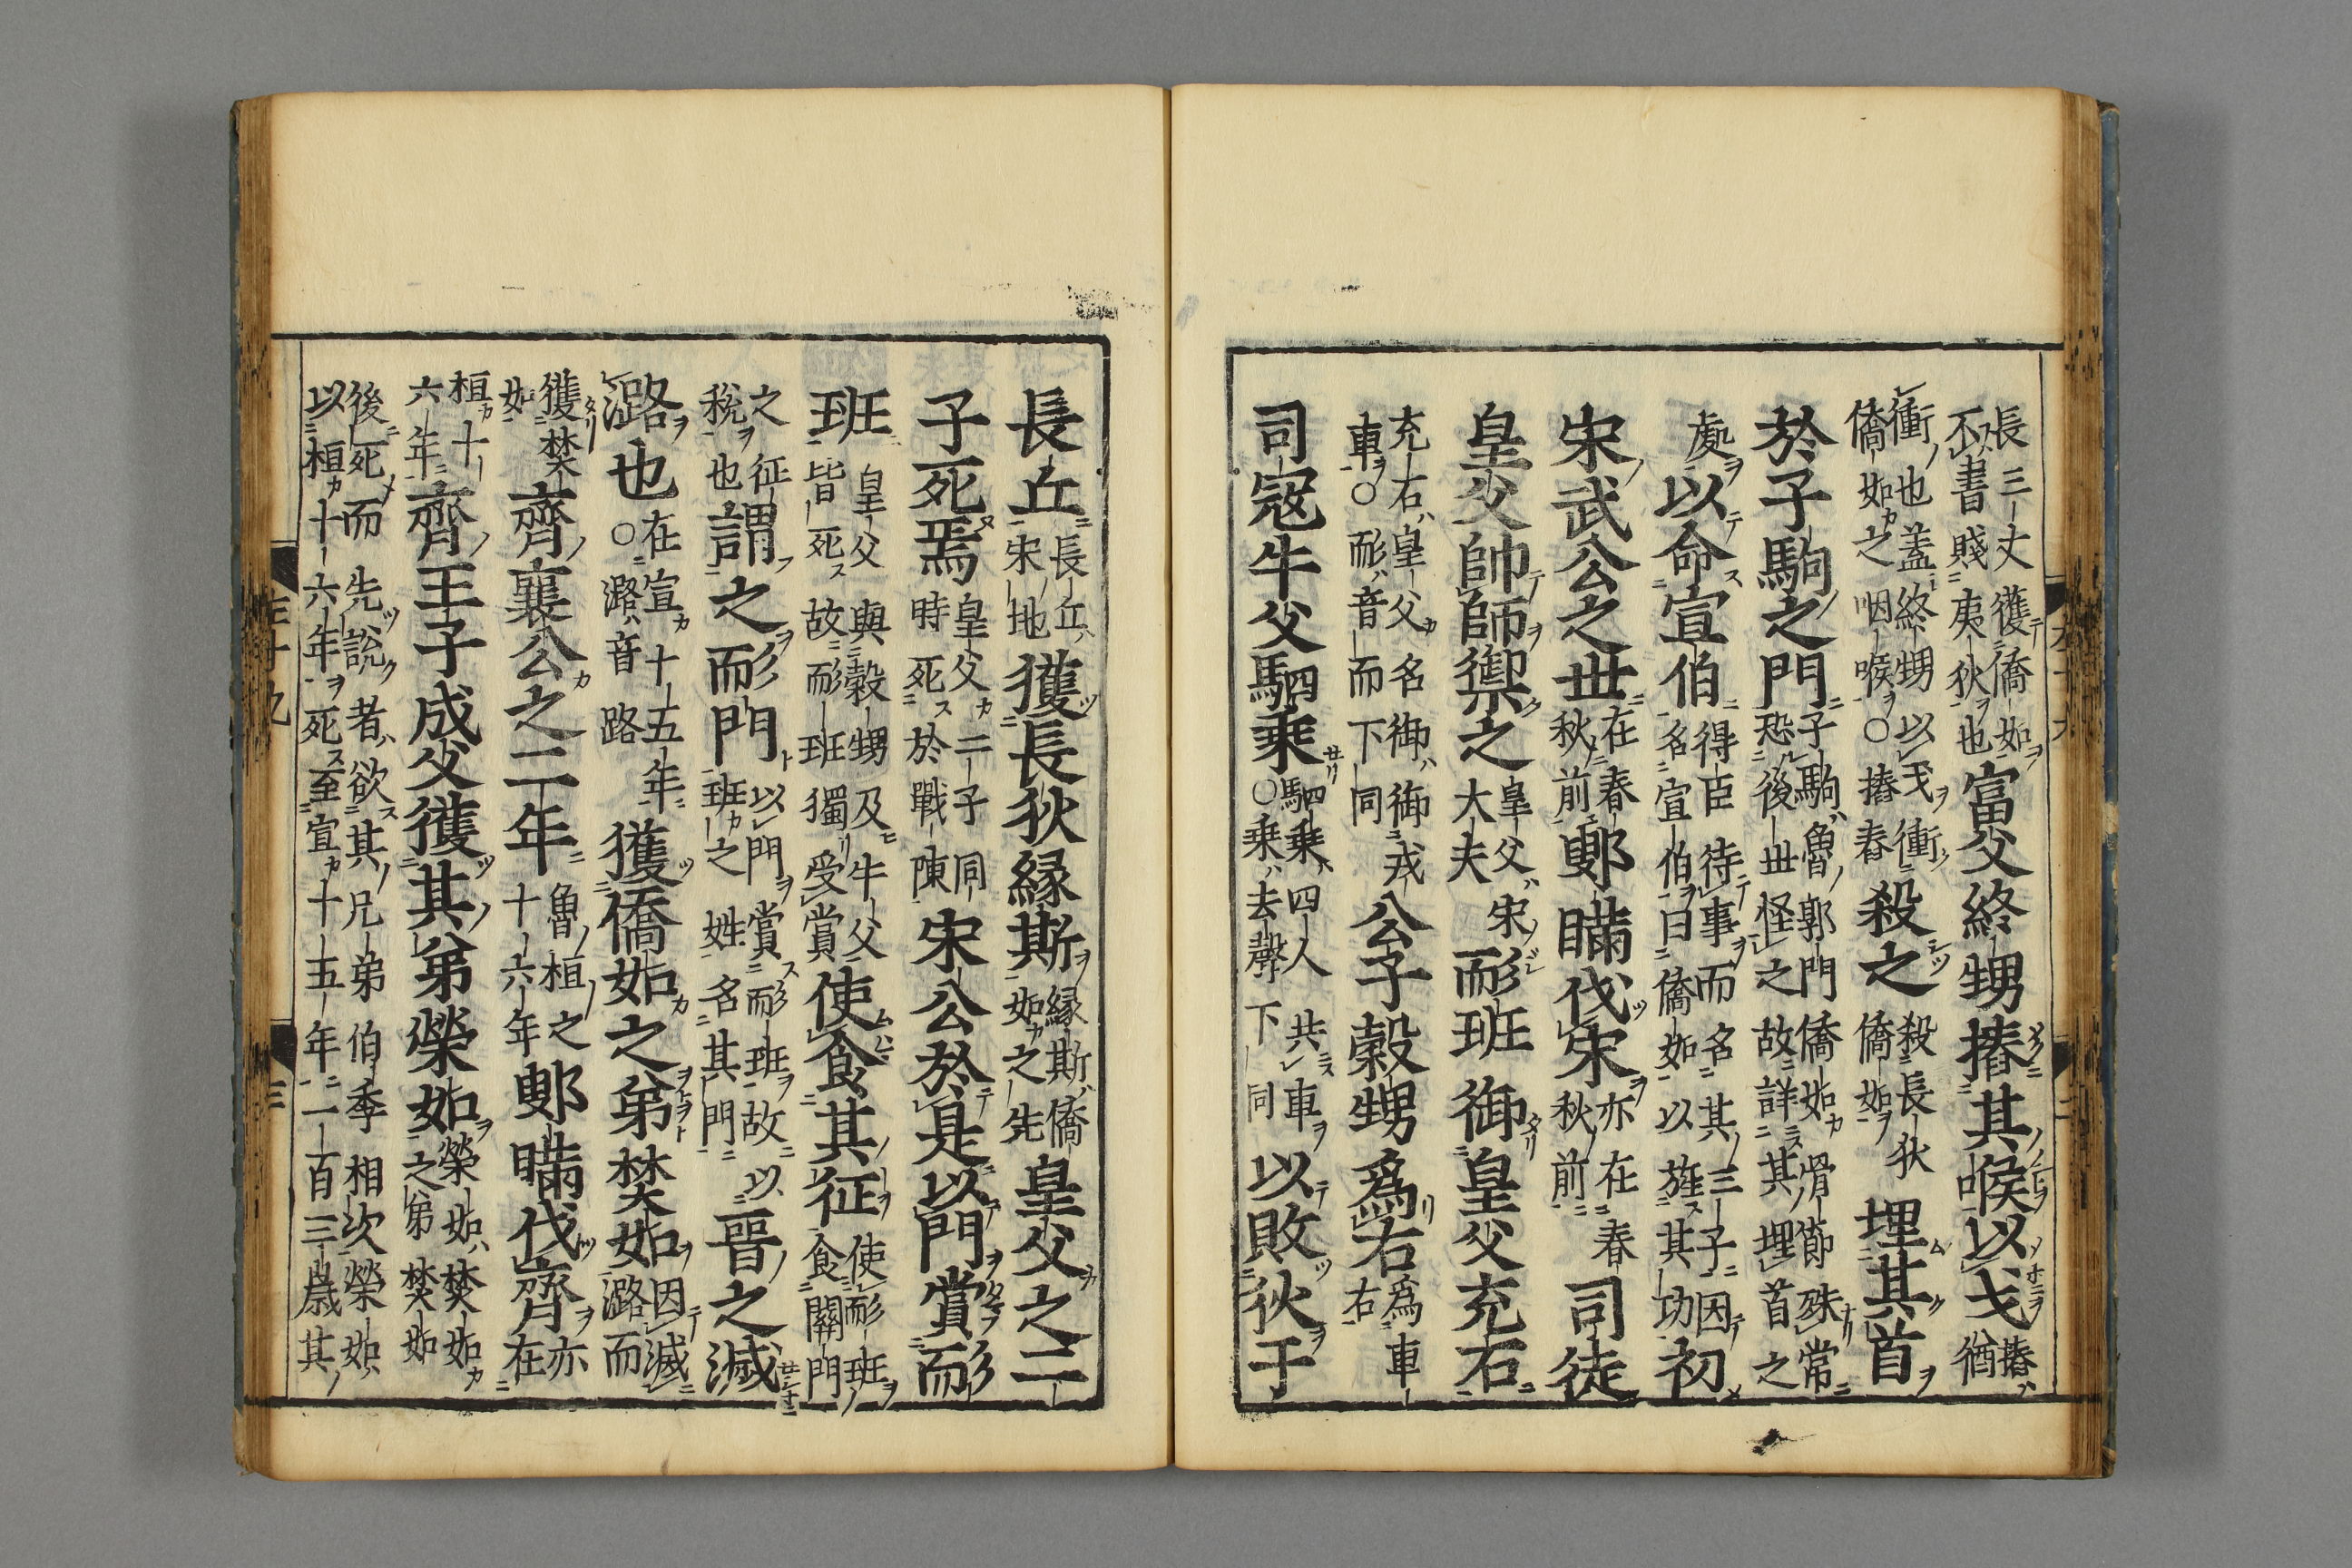 長三丈獲僑如不書賤夷狄也富父終甥摏其喉以戈摏猶
衝也蓋終甥以戈衝僑如之咽喉○摏舂殺之殺長狄僑如埋其首
於子駒之門子駒魯郭門僑如骨節殊常恐後世怪之故詳其埋首之
處以命宣伯得臣待事而名其三子因名宣伯曰僑如以旌其功初
宋武公之世在春秋前鄋瞞伐宋亦在春秋前司徒
皇父帥師禦之皇父宋大夫耏班御皇父充石
充右皇父名御御戎車○耏音而下同公子穀甥爲右爲車右
司寇牛父駟乘駟乘四人共車○乘去聲下同以敗狄于
長丘長丘宋地獲長狄縁斯縁斯僑如之先皇父之二
子死焉皇父二子同時死於戰陳宋公於是以門賞耏
班皇父與穀甥及牛父皆死故耏班獨受賞使食其征使耏班食關門
之征稅也謂之耏門以門賞耏班故班之姓名其門以晉之滅
潞也在宣十五年○潞音路獲僑如之弟焚如因滅潞而
獲焚如齊襄公之二年魯桓之十六年鄋瞞伐齊亦在
桓十六年齊王子成父獲其弟榮如榮如焚如之弟焚如
後死而先說者欲其兄弟伯季相次榮如以桓十六年死至宣十五年一百三歳其